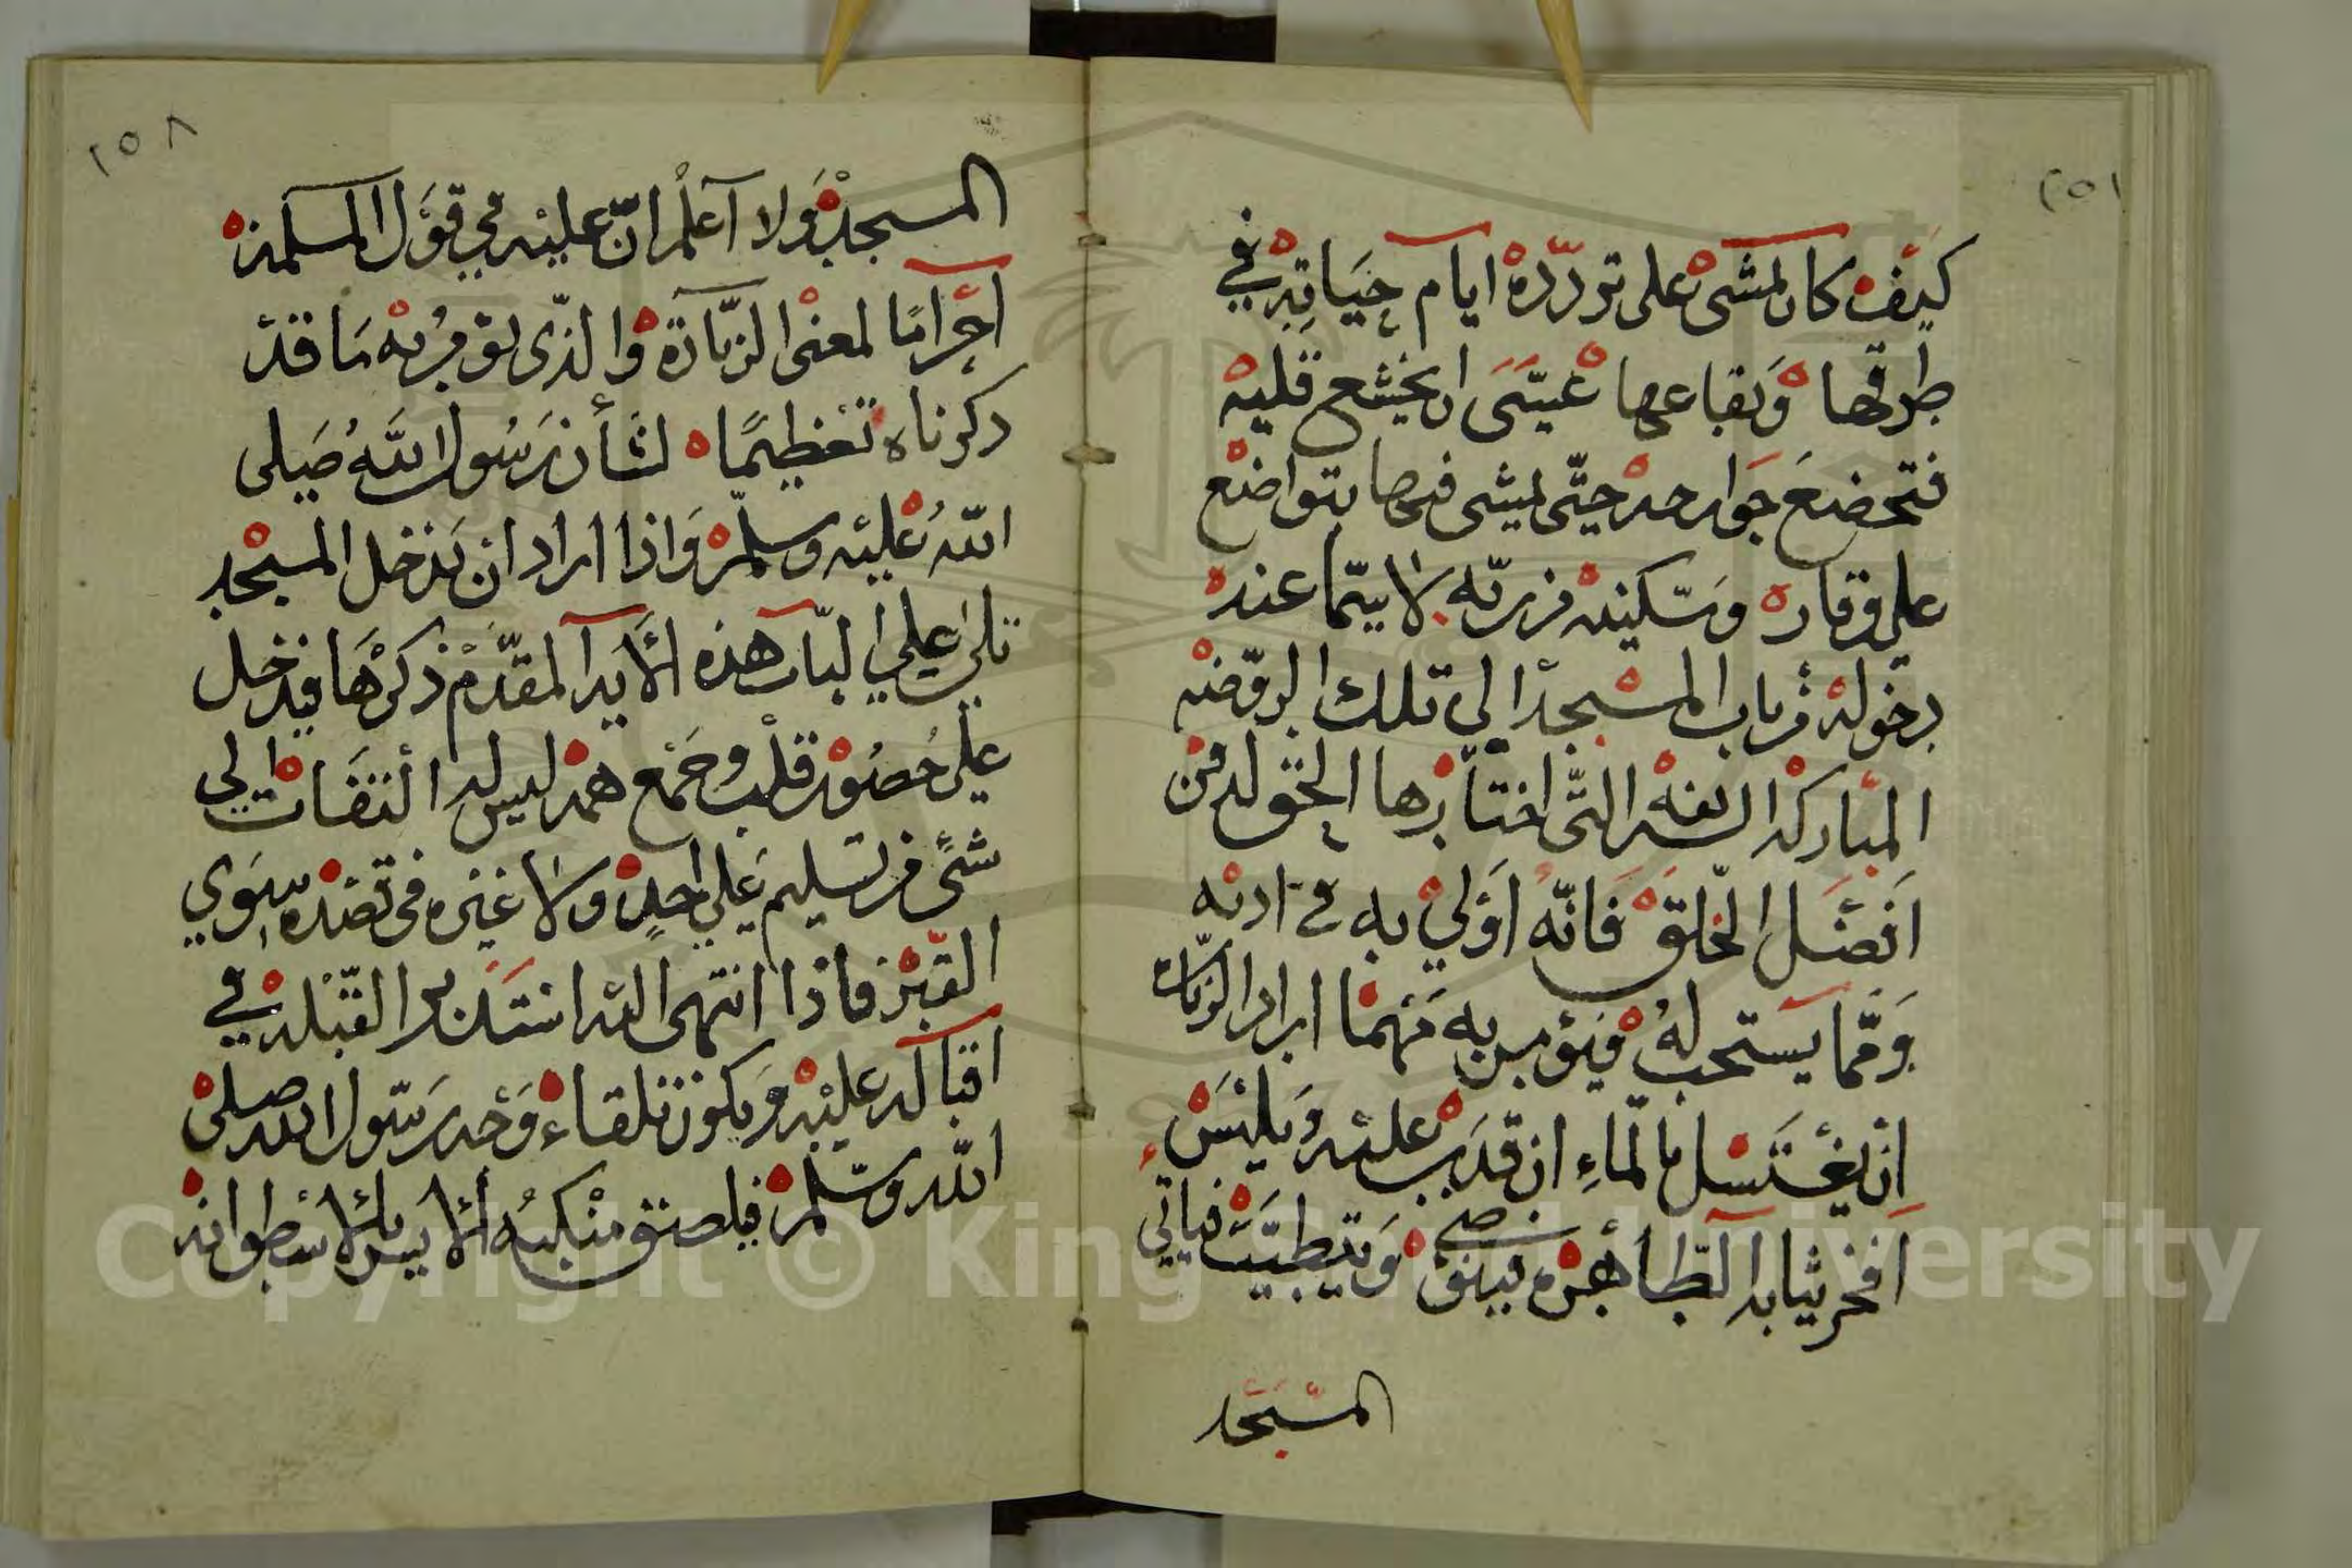 ١٥٧
كيف كان لمشى على تردده ايام حياته في
طرقها وبقاعها عيسى ان يخشع قلبه
فتخضع جوارحه حتى يمشى فيها بتواضع
على وقاره وسكينه من ربه لا يتما عند
دخوله من باب المسجد الى تلك الروضه
المباركه الشريفه التى اختارها الحق له من
افضل الخلق فانه اولي به في ادبه
ومما يستحب له فيؤمر به مهما اراد الزياره
ان يغتسل بالماء ان قدر عليه ويلبس
افخر ثيابه الطاهره وينقى ويتطيب فياتي
المسجد
١٥٨
المسجد ولا اعلم ان عليه في قول المسلمة
احراما لمعنى الزيارة والذى يؤمر به ما قد
ذكرناه تعظيما لشأن رسول الله صلى
الله عليه وسلم واذا اراد ان يدخل المسجد
تلى علي الباب هذه الايه المقدم ذكرها فيدخل
على حضور قلب وجمع همه ليس له التفات الي
شئ من تسليم علي احد ولا غيره فى قصده سوي
القبر فاذا انتهى اليه استدبر القبله في
اقباله عليه ويكون تلقاء وجه رسول الله صلى
الله وسلم فيلصق منكبه الايسر بالاسطوانه
Copyright © King Saud University